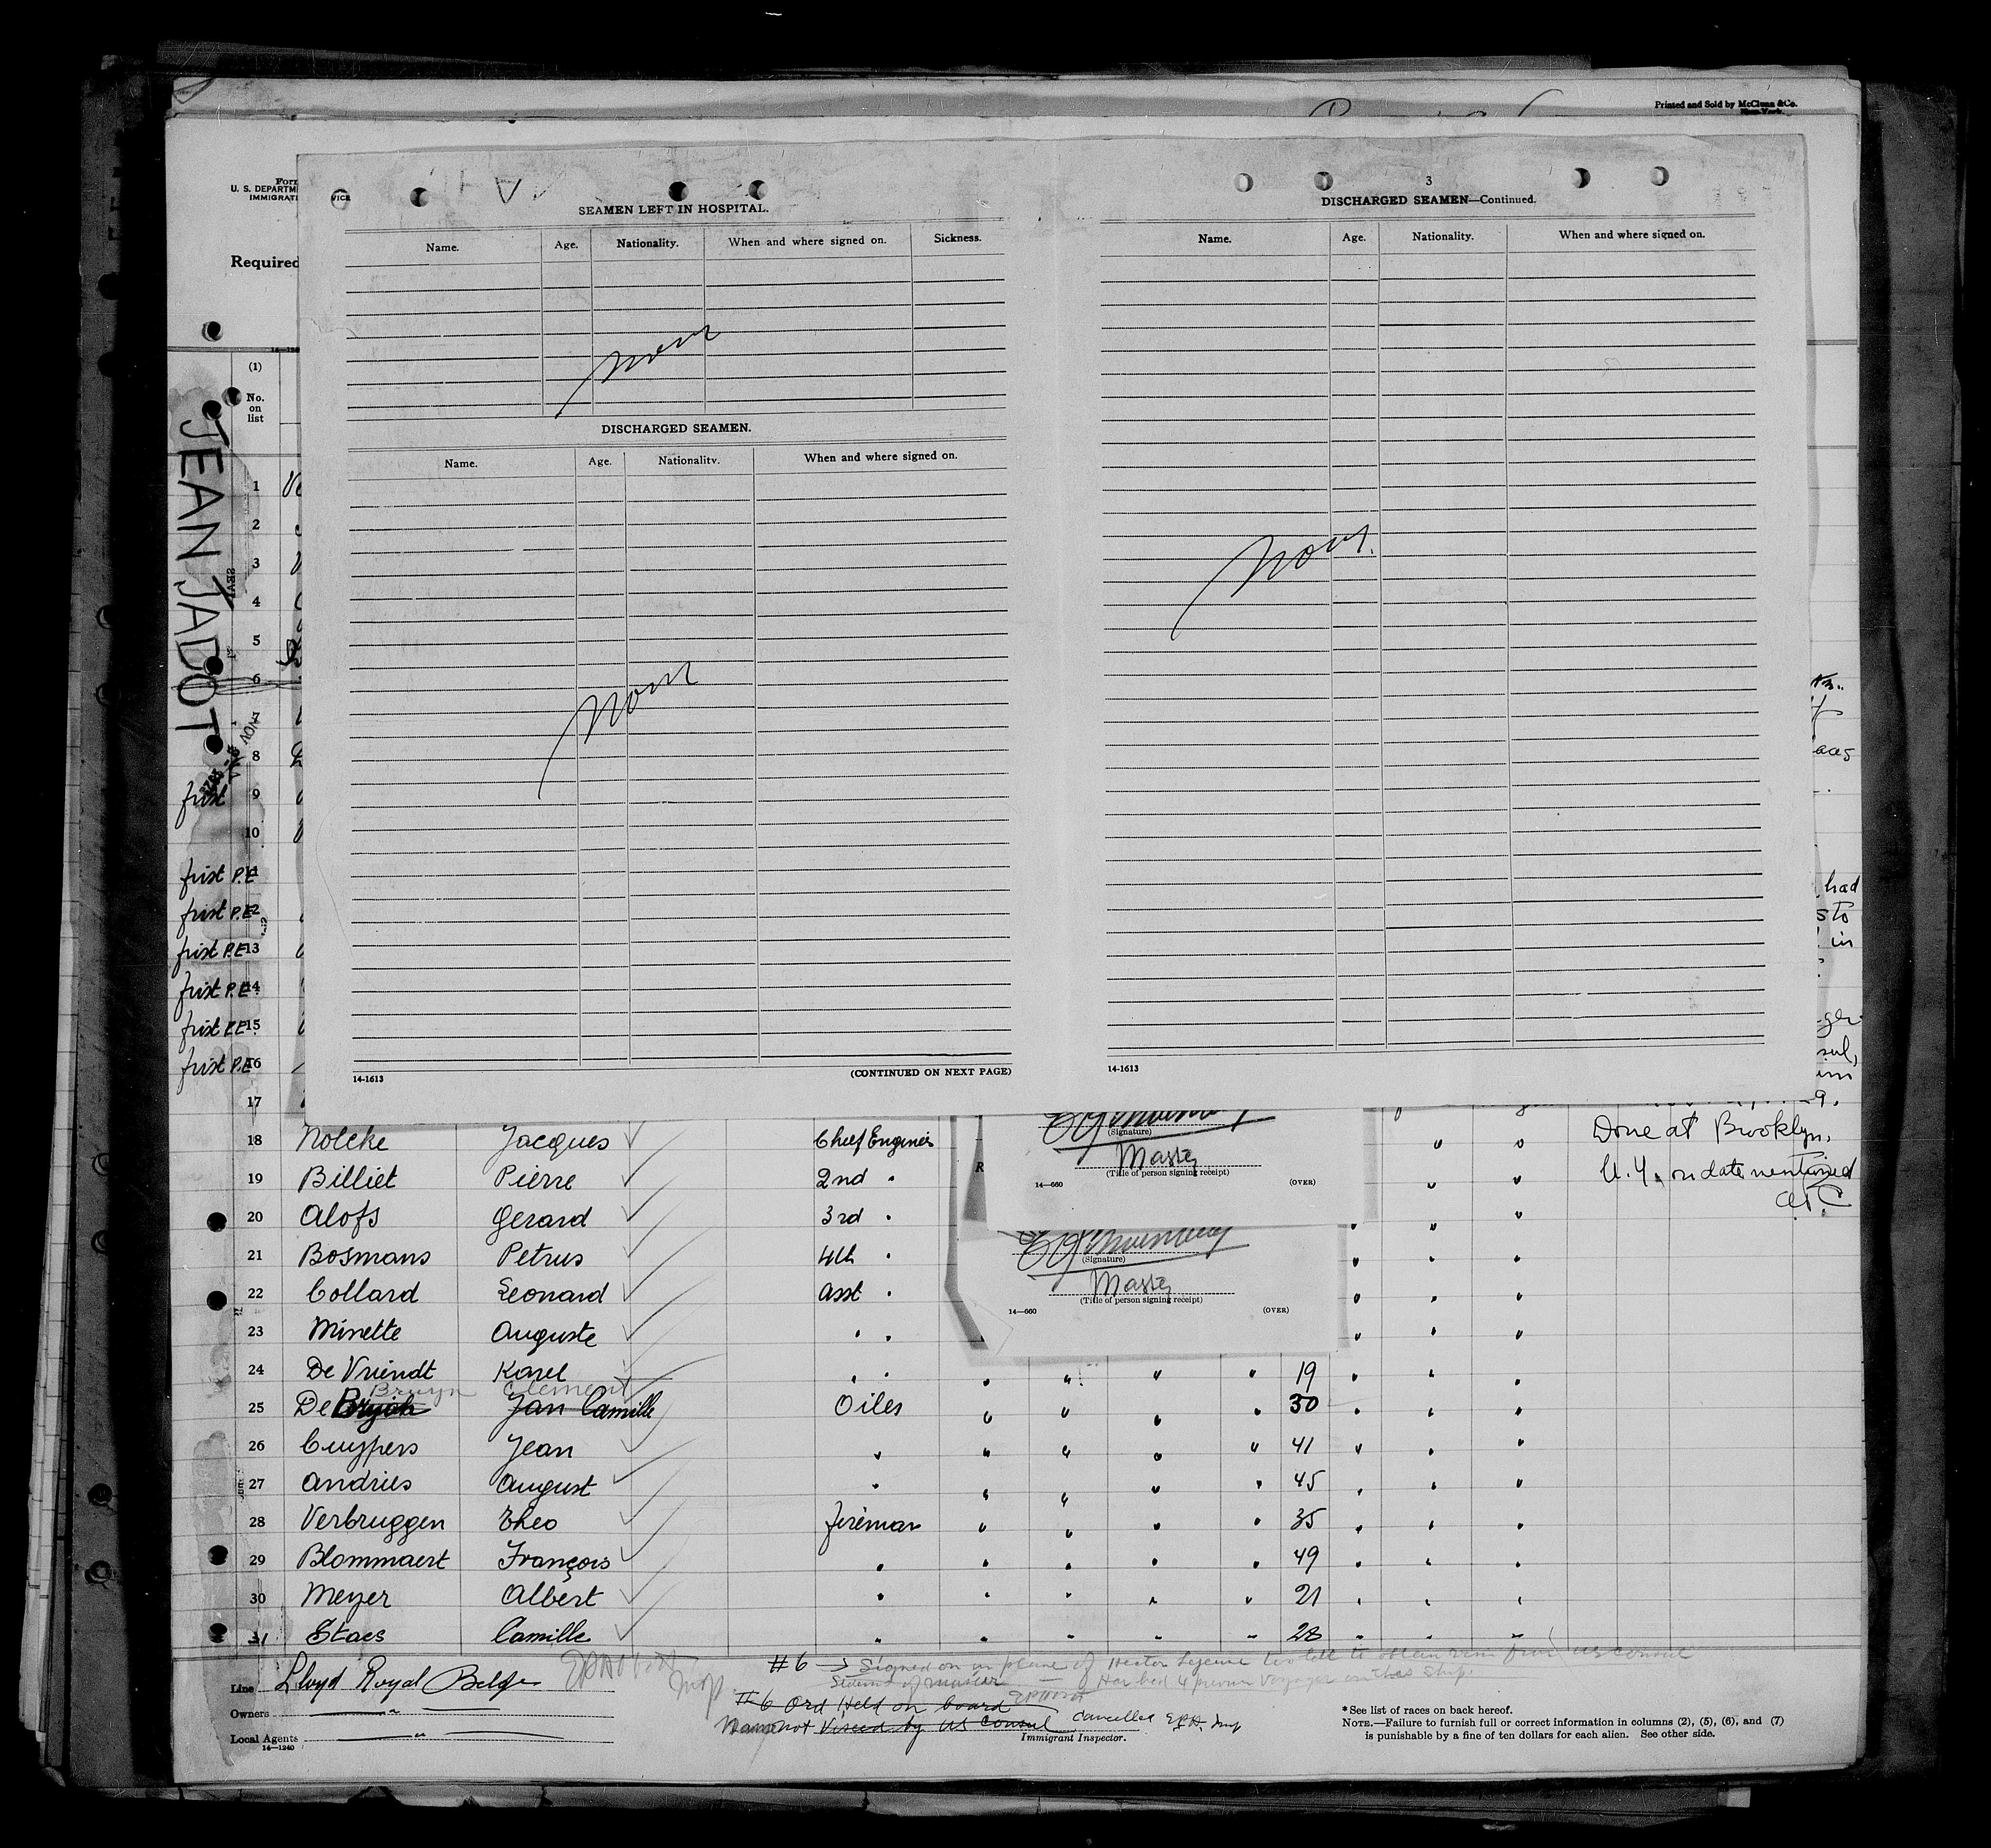 Printed and Sold by McClunn & Co.
New York.
Form
U. S. DEPARTM
IMMIGRATI
VICE
Required
(1)
No.
on
list
JEAN JADOT
SEAMEN LEFT IN HOSPITAL.
Name. Age. Nationality. When and where signed on. Sickness.
None
DISCHARGED SEAMEN.
Name. Age. Nationality. When and where signed on.
None
14-1613 (CONTINUED ON NEXT PAGE)
3
DISCHARGED SEAMEN—Continued.
Name. Age. Nationality. When and where signed on.
None.
14-1613
1
2
3
4
5
6
7
8
first 9
10
first P.E 11
first P.E 12
first P.E 13
first P.E 14
first P.E 15
first P.E 16
17
had
to
in
(Signature)
Master
(Title of person signing receipt)
14—660 (OVER)
(Signature)
Master
(Title of person signing receipt)
14—660 (OVER)
18 Nolcke Jacques Chief Engineer " " Done at Brooklyn,
19 Billiet Pierre 2nd " " " N.Y. on date mentioned
20 Alofs Gerard 3rd " " "
21 Bosmans Petrus 4th " " " "
22 Collard Leonard Asst " " " "
23 Minette Auguste " " " " "
24 De Vriendt Karel " " " " " " 19 " " "
Bruyn Clement
25 De Jan Camille Oiler " " " " 30 " " "
26 Cuypers Jean " " " " " 41 " " "
27 Andries August " " " " " 45 " " "
28 Verbruggen Theo fireman " " " " 35 " " "
29 Blommaert François " " " " " 49 " " "
30 Meyer Albert " " " " " 21 " " "
31 Staes Camille " " " " " 28 " " "
Line Lloyd Royal Belge
Owners "
Local Agents "
14—1240
#6 → Signed on in place of Hector Lejeune too late to obtain visa from US Consul
Had 4 previous voyages on this ship.
#6 Ord Held on board
not Viseed by US Consul Cancelled
Immigrant Inspector.
* See list of races on back hereof.
NOTE.—Failure to furnish full or correct information in columns (2), (5), (6), and (7)
is punishable by a fine of ten dollars for each alien. See other side.